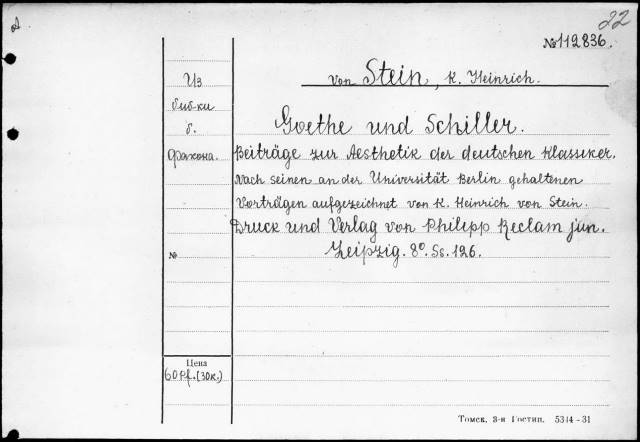 22
№112836.
von Stein, K. Heinrich.
Из
биб-ки
б.
Фахона.
Goethe und Schiller.
Beiträge zur Aesthetik der deutschen Klassiker.
Nach seinen an der Universität Berlin gehaltenen
Vorträgen aufgezeichnet von K. Heinrich von Stein.
Druck und Verlag von Philipp Reclam jun.
Leipzig. 8º. Ss. 126.
№
Цена
60 Pf. (30к.)
Томск. 3-я Гостип. 5314-31